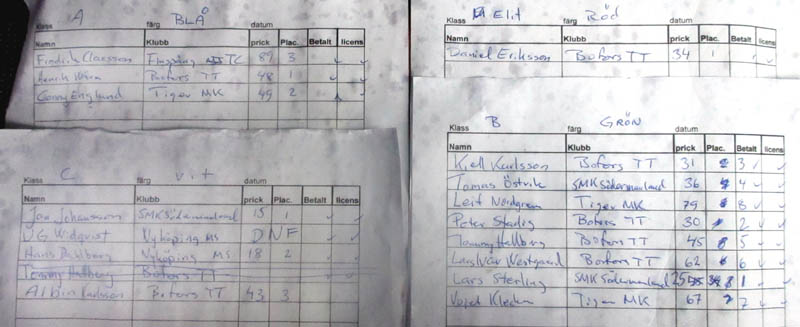 Klass A färg BLÅ datum
Namn Klubb prick Plac. Betalt licens
Fredrik Claesson Finspång TC 89 3
Henrik Bofors TT 48 1
Conny Englund Tiger MK 49 2
Klass Elit färg Röd datum
Namn Klubb prick Plac. Betalt licens
Daniel Eriksson Bofors TT 34 1
Klass C färg vit datum
Namn Klubb prick Plac. Betalt licens
Jan Johansson SMK Södermanland 15 1
UG Widqvist Nyköping MS DNF
Hans Dahlberg Nyköping MS 18 2
Tommy Hallberg Bofors TT
Albin Karlsson Bofors TT 43 3
Klass B färg GRÖN datum
Namn Klubb prick Plac. Betalt licens
Kjell Karlsson Bofors TT 31 3
Tomas Östvik SMK Södermanland 36 4
Leif Nordgren Tiger MK 79 8
Peter Bofors TT 30 2
Tommy Hallberg Bofors TT 45 5
Lars Ivar Westgaard Bofors TT 62 6
Lars Sterling SMK Södermanland 25 1
Tiger MK 67 7